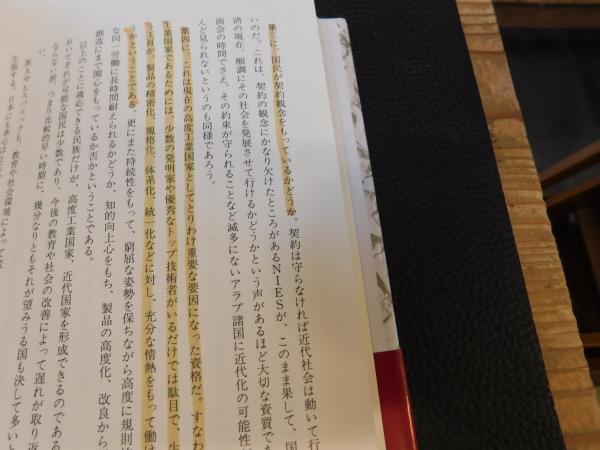 第三に、国民が契約観念をもっているかどうか。契約は守らなければ近代社会は動いて行
いのだ。これは、契約の観念にかなり欠けたところがあるNIESが、このまま果して、国
済の現在、順調にその社会を発展させて行けるかどうかという声があるほど大切な資質であ
面会の時間でさえ、その約束が守られることなど滅多にないアラブ諸国に近代化の可能性
んど見られないというのも同様であろう。
第四に、これは現在の高度工業国家としてとりわけ重要な要因になった資格だ。すなわ
工業国家であるためには、少数の発明家や優秀なトップ技術者がいるだけでは駄目で、生
工員が、製品の精密化、規格化、体系化、統一化などに対し、充分な情熱をもって働け
うかということである。更にまた持続性をもって、窮屈な姿勢を保ちながら高度に規則的
な同一労働に長時間耐えられるかどうか、知的向上心をもち、製品の高度化、改良から
創造にまで関心をもっているか否かということである。
以上のことに適応できる民族だけが、高度工業国家、近代国家を形成できるのである
おいてそれが可能な国民は少数であり、今後の教育や社会の改善によって遅れが取り返
ならない所、つまり比較的早い時期に、幾分なりともそれが望みうる国も決して多いと
い。
黒人やヒスパニックも、教育や社会環境によって
主張する。日本にも本心は